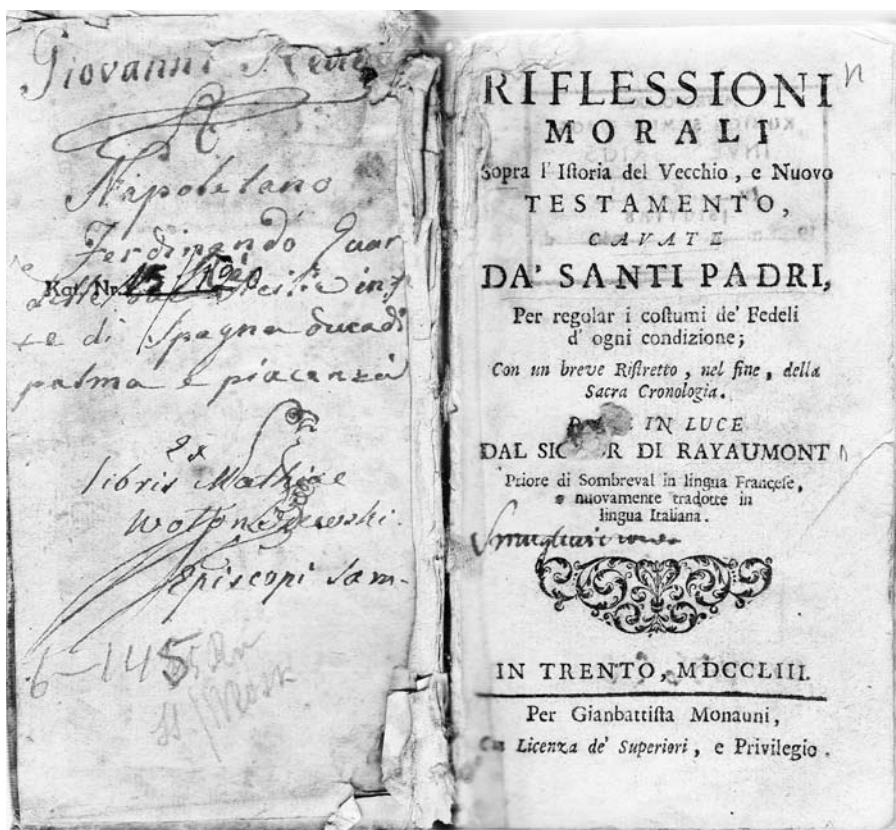 Giovanni
Napoletano
Ferdinando Quar
Kat. Nr. 15
te di Spagna ducadi
parma e piacenza
Ex
libris Mathiae
Episcopi Sam-
6-145
RIFLESSIONI
MORALI
Sopra l' Iſtoria del Vecchio, e Nuovo
TESTAMENTO,
CAVATE
DA' SANTI PADRI,
Per regolar i coſtumi de' Fedeli
d' ogni condizione;
Con un breve Riſtretto, nel fine, della
Sacra Cronologia.
IN LUCE
DAL DI RAYAUMONT
Priore di Sombreval in lingua Franceſe,
e nuovamente tradotte in
lingua Italiana.
IN TRENTO, MDCCLIII.
Per Gianbattiſta Monauni,
Con Licenza de' Superiori, e Privilegio.